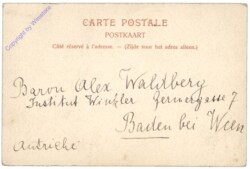 Copyright by Worldedel
CARTE POSTALE
POSTKAART
Côté réservé à l'adresse. — (Zijde voor het adres alleen.)
Baron Alex Waldberg
Institut Winkler Germergasse 7
Baden bei Wien
Autriche